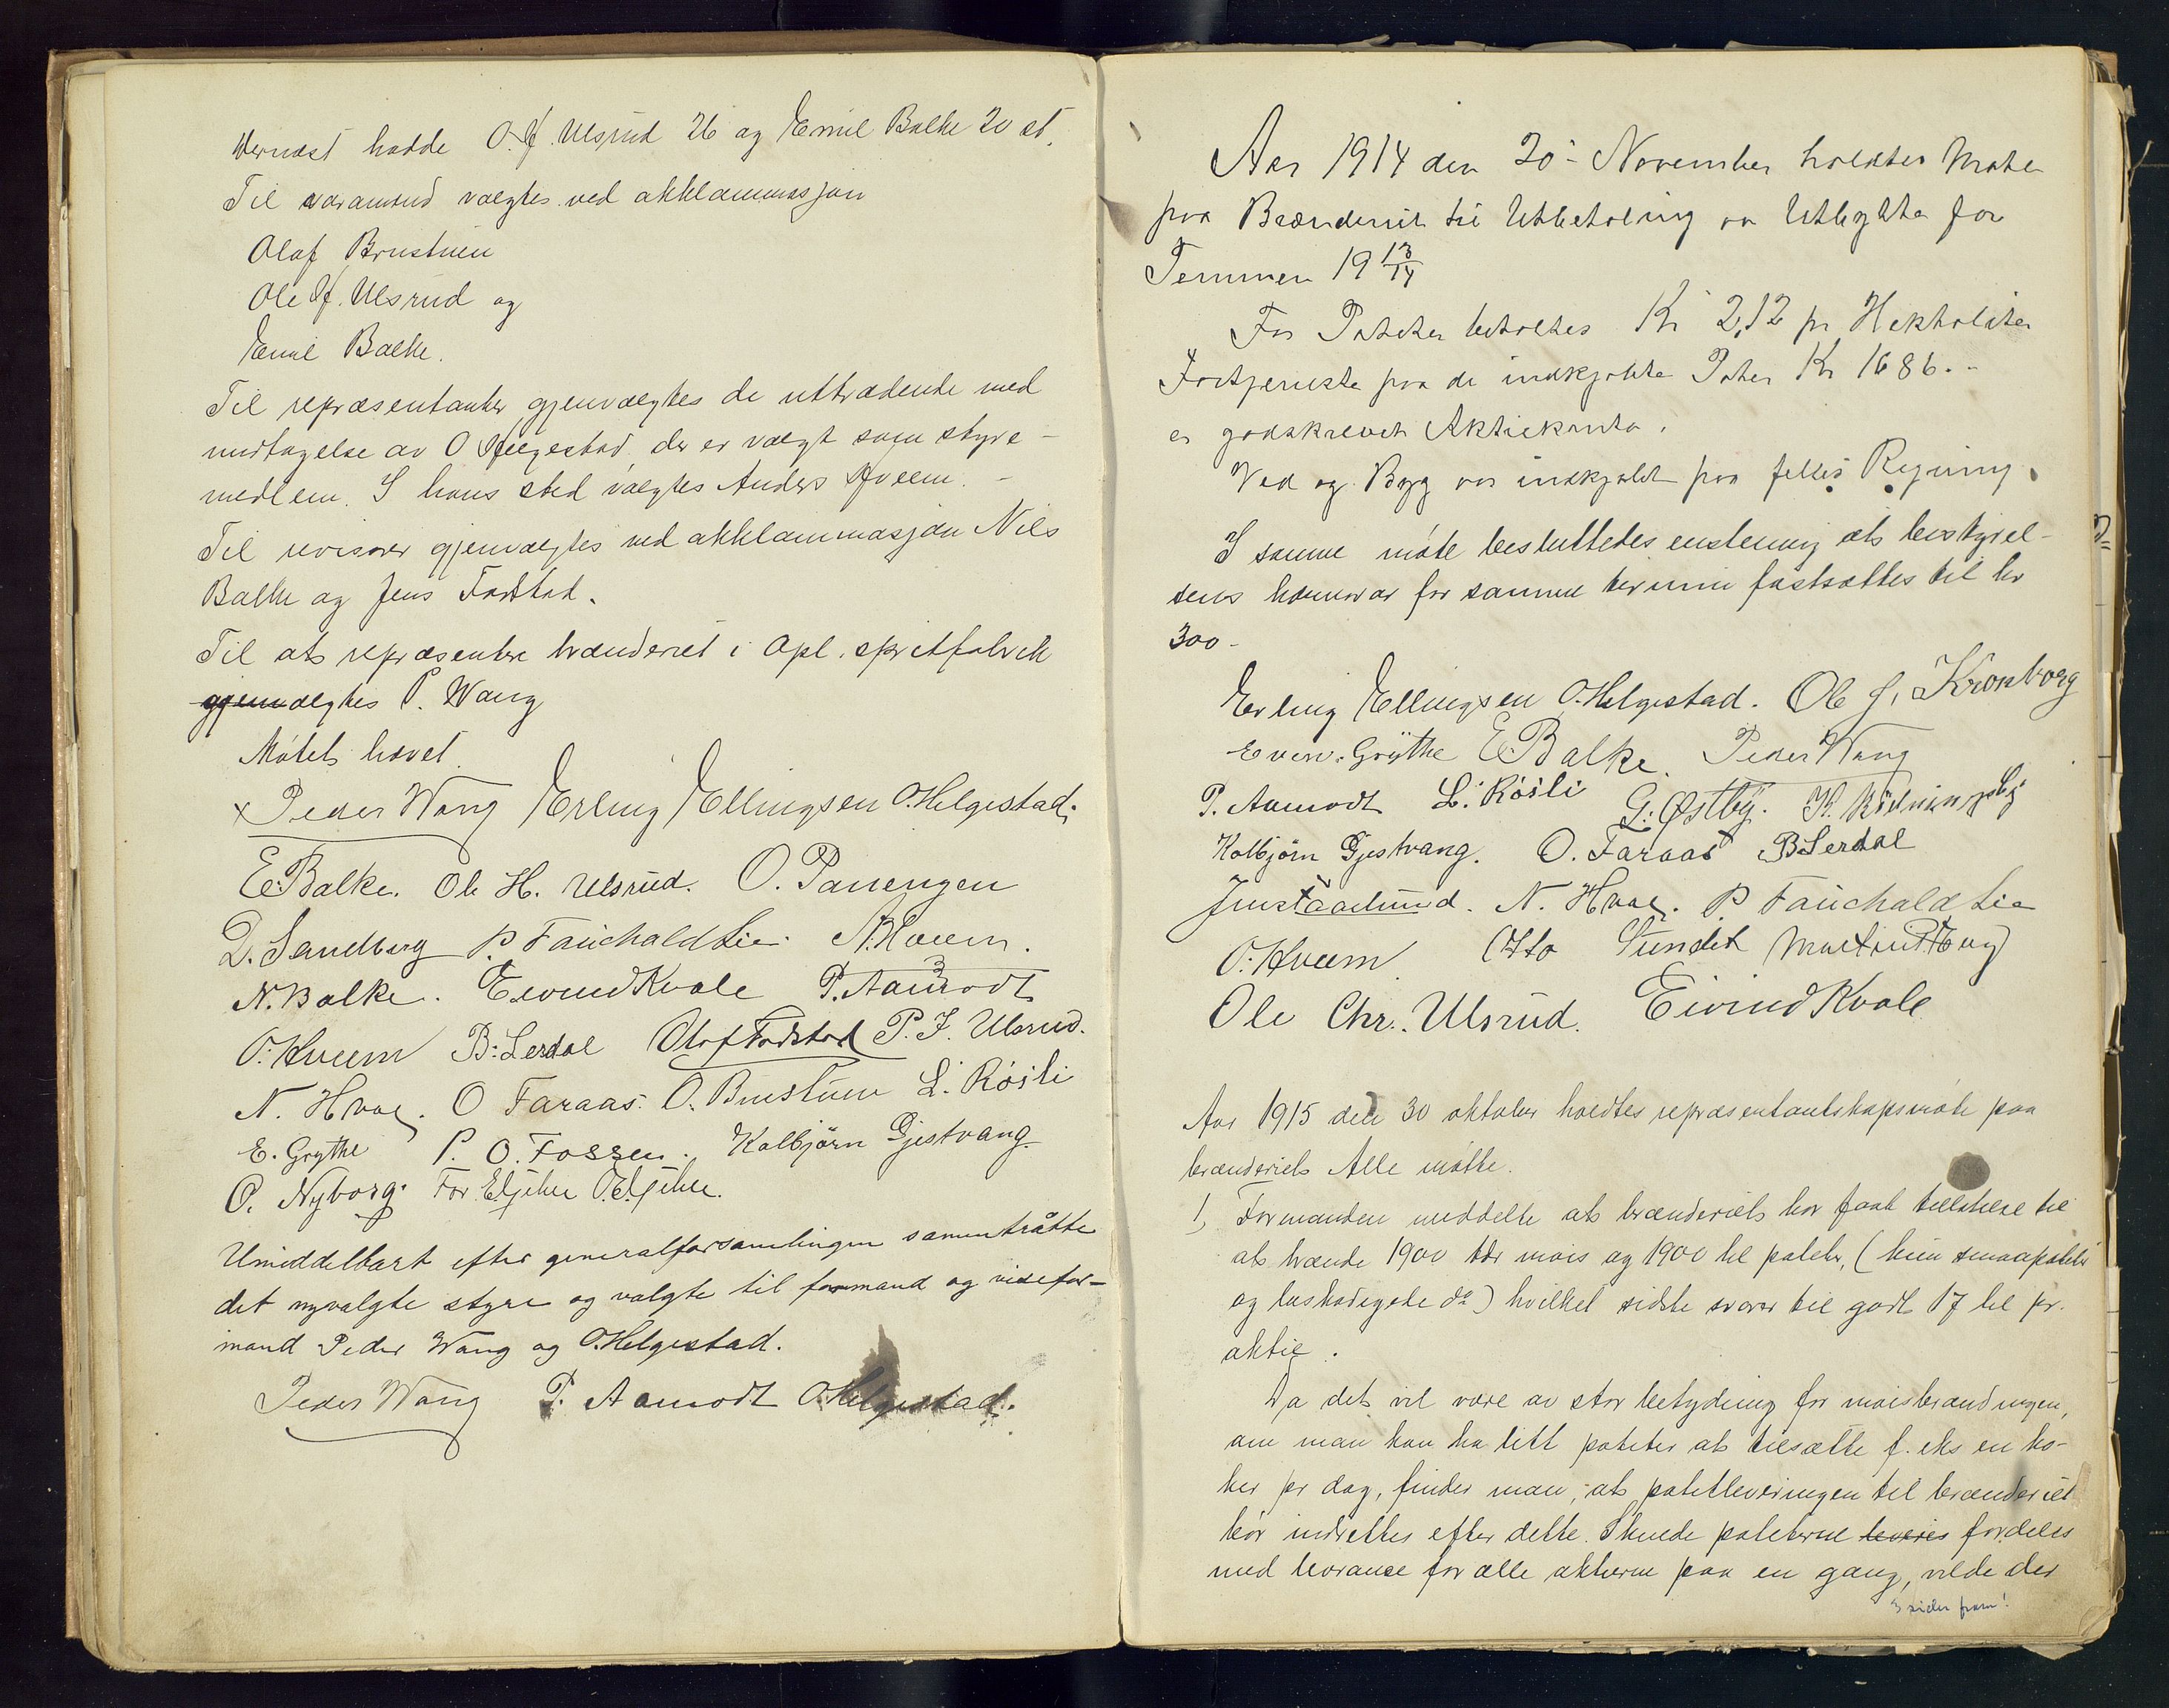 Dernæst hadde O. H. Ulsrud 26 og Emil Balke 20 st.
Til varamænd valgtes ved akklammasjon
Olaf Brustuen
Ole H. Ulsrud og
Emil Balke.
Til repræsentanter gjenvalgtes de uttrædende med
undtagelse av O Helgestad, der er valgt som styre-
medlem. I hans sted valgtes Anders Hveem. -
Til revisorer gjenvalgtes ved akklammasjon Nils
Balke og Jens Fodstad.
Til at repræsentere brænderiet i Opl. spritfabrik
gjenvalgtes P. Wang
Møtet hævet.
Peder Wang Erling Ellingsen O. Helgestad.
E. Balke. Ole H. Ulsrud. O. Panengen
D. Sandberg P. Fauchald Lie. A. Hveem.
N. Balke. Eivind Kvale P. Aamodt
O. Hveem B. Lerdal Olaf Fodstad P. J. Ulsrud.
N. Hvae. O Faraas. O. Brustuen L. Røisli
E. Grythe P. O. Fossen. Kolbjörn Gjestvang.
O. Nyborg. For
Umiddelbart efter generalforsamlingen sammentråtte
det nyvalgte styre og valgte til formand og visefor-
mand Peder Wang og O. Helgestad.
Peder Wang P. Aamodt O. Helgestad.
Aar 1914 den 20 - November holdtes Møte
paa Brænderiet til Utbetaling av Utbytte for
Terminen 19 13/14
For Poteter betaltes Kr 2,12 pr Hektoliter
Fortjeneste paa de indkjøpte Poter Kr 1686.-
er godskrevet Aktiekonto.
Ved og Byg var indkjøpt paa felles Regning.
I samme møte besluttedes enstemmig at bestyrel-
sens honorar for samme termin fastsættes til kr
300 -
Erling Ellingsen O. Helgestad. Ole J. Kronborg
Even. Grythe E Balke. Peder Wang
P. Aamodt L. Røisli G. Østby.
Kolbjörn Gjestvang. O. Faraas B Lerdal
N. Hvae. P Fauchald Lie
O. Hveem. Otto Sundet
Ole Chr. Ulsrud. Eivind Kvale
Aar 1915 den 30 oktober holdtes repræsentantskapsmøte paa
brænderiet Alle møtte.
1, Formanden meddelte at brænderiet har faat tillatelse til
at brænde 1900 tdr mais og 1900 hl poteter, (kun smaapoteter
og beskadigede do) hvilket sidste svarer til godt 17 hl pr.
aktie.
Da det vil være av stor betydning for maisbrændingen,
om man kan ha litt poteter at tilsætte f. eks en ko-
ker pr dag, finder man, at potetleveringen til brænderiet
bør indrettes efter dette. Skulde poteterne leveres fordeles
med leveranse for alle aktierne paa en gang, vilde der
3 sider fram!